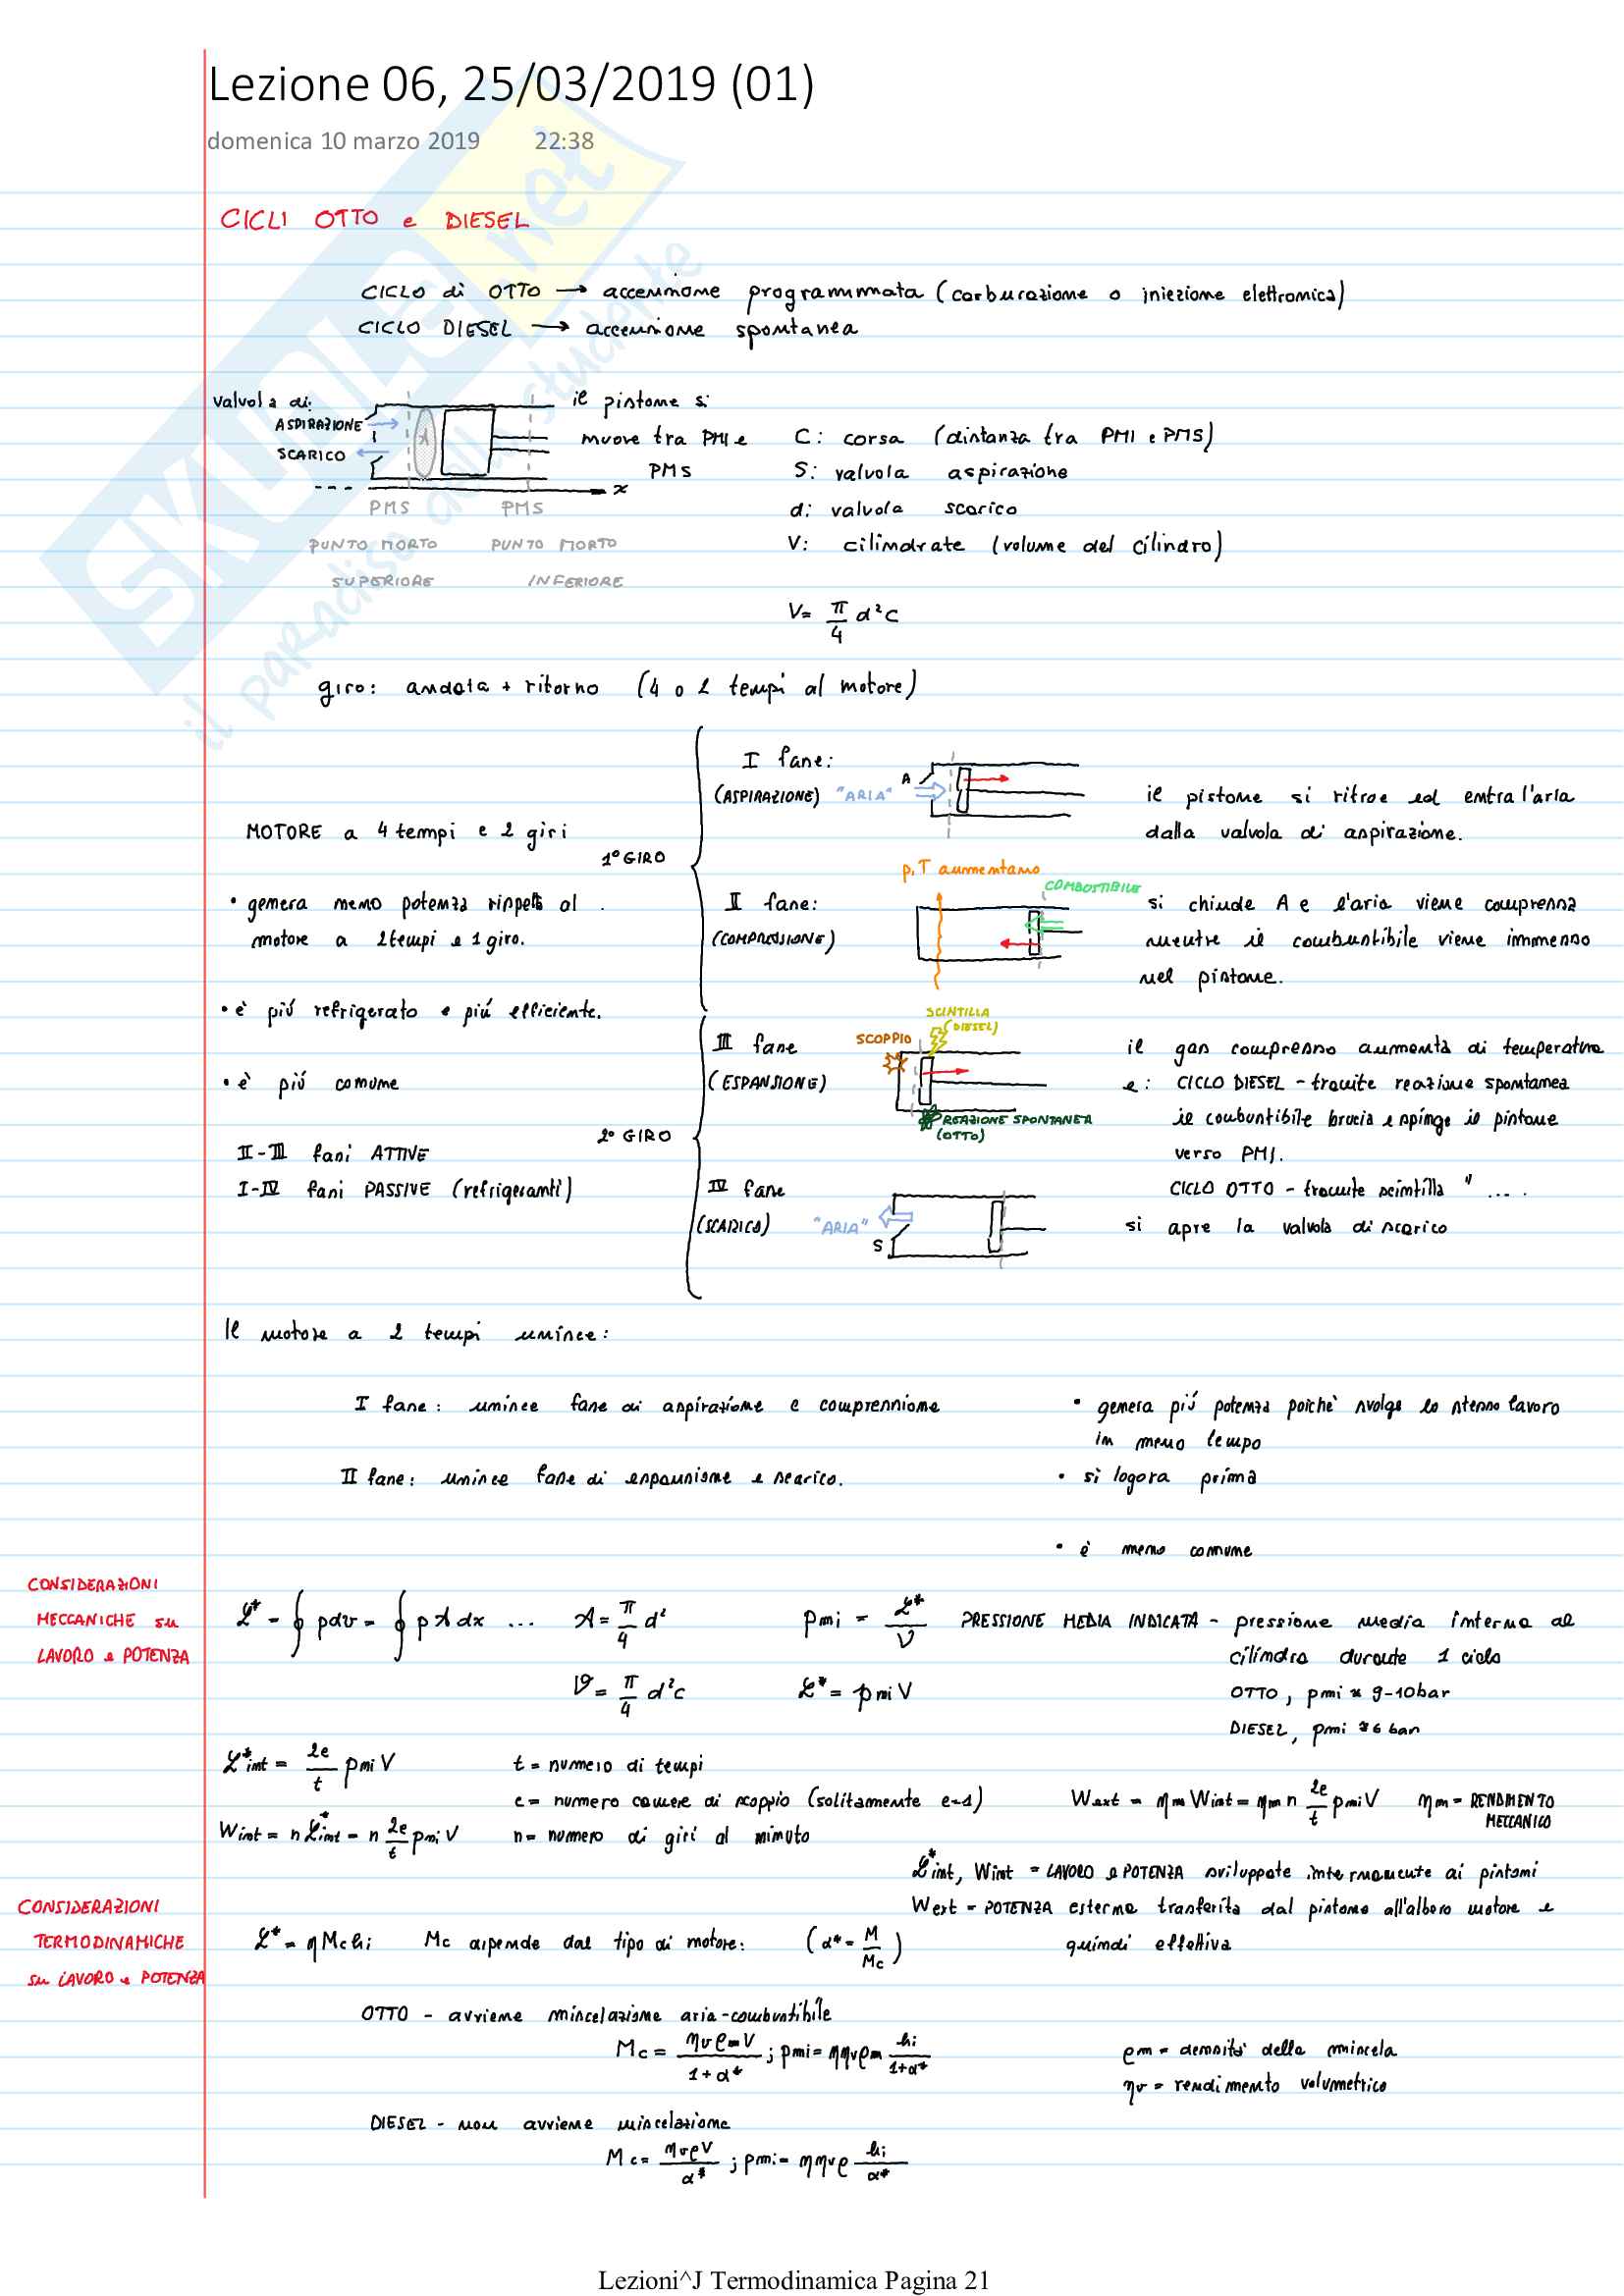 Lezione 06, 25/03/2019 (01)
domenica 10 marzo 2019 22:38
SKUOLA.net
il paradiso dello studente
CICLI OTTO e DIESEL
CICLO di OTTO → accensione programmata (carburazione o iniezione elettronica)
CICLO DIESEL → accensione spontanea
valvola di:
ASPIRAZIONE
SCARICO
A
x
PMS PMS
PUNTO MORTO PUNTO MORTO
SUPERIORE INFERIORE
il pistone si
muove tra PMI e
PMS
C: corsa (distanza tra PMI e PMS)
S: valvola aspirazione
d: valvola scarico
V: cilindrate (volume del cilindro)
V= π/4 d²C
giro: andata + ritorno (4 o 2 tempi al motore)
MOTORE a 4 tempi e 2 giri
• genera meno potenza rispetto al
motore a 2 tempi e 1 giro.
• è più refrigerato e più efficiente.
• è più comune
II-III fasi ATTIVE
I-IV fasi PASSIVE (refrigeranti)
1° GIRO
I fase:
(ASPIRAZIONE) "ARIA" A
il pistone si ritrae ed entra l'aria
dalla valvola di aspirazione.
p,T aumentano
COMBUSTIBILE
II fase:
(COMPRESSIONE)
si chiude A e l'aria viene compressa
mentre il combustibile viene immesso
nel pistone.
2° GIRO
SCINTILLA
(DIESEL)
SCOPPIO
III fase
(ESPANSIONE)
REAZIONE SPONTANEA
(OTTO)
il gas compresso aumenta di temperatura
e: CICLO DIESEL - tramite reazione spontanea
il combustibile brucia e spinge il pistone
verso PMI.
CICLO OTTO - tramite scintilla " ....
IV fase
(SCARICO) "ARIA" S
si apre la valvola di scarico
Il motore a 2 tempi unisce:
I fase: unisce fase di aspirazione e compressione
II fase: unisce fase di espansione e scarico.
• genera più potenza poichè svolge lo stesso lavoro
in meno tempo
• si logora prima
• è meno comune
CONSIDERAZIONI
MECCANICHE su
LAVORO e POTENZA
L* = ∮ pdv = ∮ p A dx ... A = π/4 d² pmi = L*/V PRESSIONE MEDIA INDICATA - pressione media interna al
cilindro durante 1 ciclo
V = π/4 d²c L* = pmi V OTTO, pmi ≈ 9-10bar
DIESEL, pmi ≈ 6 bar
L*int = 2e/t pmi V t = numero di tempi
e = numero camere di scoppio (solitamente e=1) Wext = ηm Wint = ηm n 2e/t pmi V ηm = RENDIMENTO
MECCANICO
Wint = n L*int = n 2e/t pmi V n = numero di giri al minuto
L*int, Wint = LAVORO e POTENZA sviluppate internamente ai pistoni
Wext = POTENZA esterna trasferita dal pistone all'albero motore e
quindi effettiva
CONSIDERAZIONI
TERMODINAMICHE
su LAVORO e POTENZA
L* = η Mc hi Mc dipende dal tipo di motore: (α* = M/Mc)
OTTO - avviene miscelazione aria-combustibile
Mc = ηv ρm V/1+α* ; pmi = ηηvρm hi/1+α*
ρm = densità della miscela
ηv = rendimento volumetrico
DIESEL - non avviene miscelazione
Mc = ηvρV/α* ; pmi = ηηvρ hi/α*
Lezioni^J Termodinamica Pagina 21